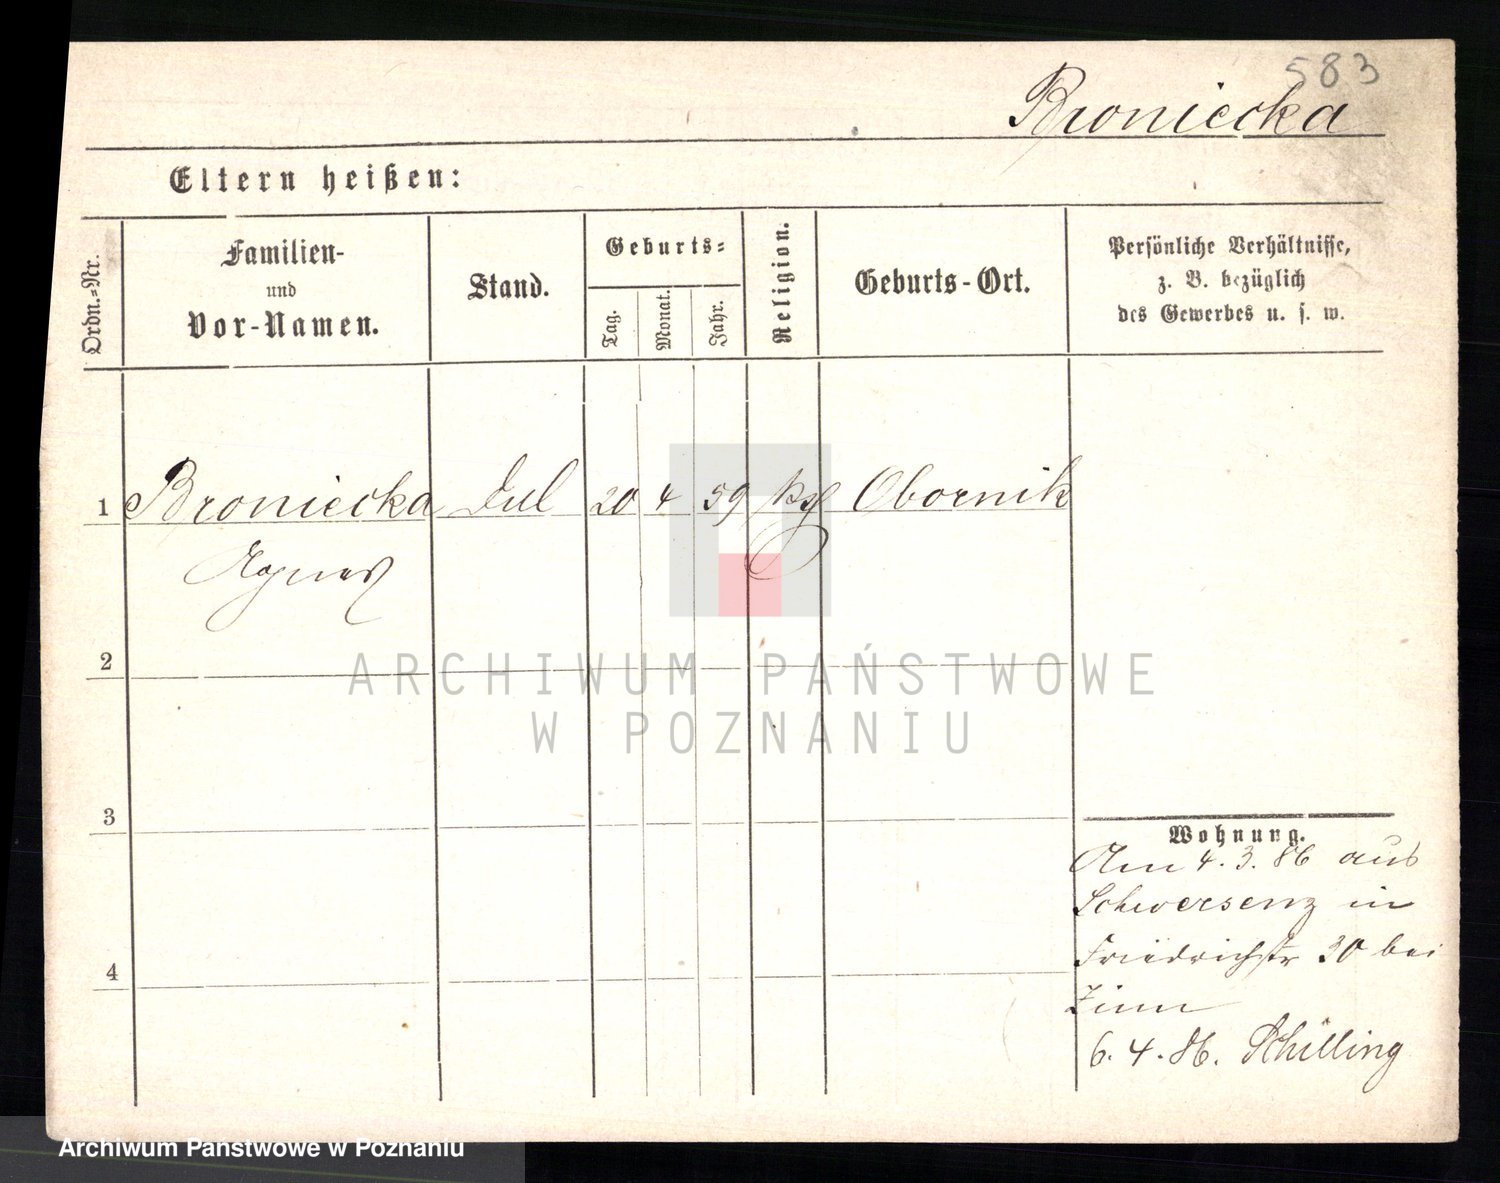 583
Broniecka
Eltern heißen:
Ordn.=Nr.
Familien-
und
Vor-Namen.
Stand.
Geburts=
Tag.
Monat.
Jahr.
Religion.
Geburts-Ort.
Persönliche Verhältnisse,
z. B. bezüglich
des Gewerbes u. s. w.
1 Broniecka 20 4 59 Obornik
Agnes
2
ARCHIWUM PAŃSTWOWE
W POZNANIU
3
Wohnung.
Am 4. 3. 86 aus
Schwersenz in
Friedrichstr 30 bei
4
Zinn
6. 4. 86. Schilling
Archiwum Państwowe w Poznaniu